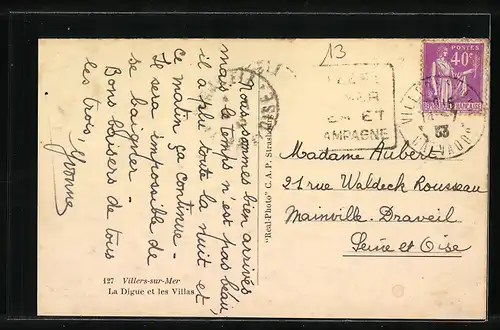 Nous sommes bien arrivés
mais le temps n'est pas beau,
il a plu toute la nuit et
ce matin ça continue -
Il sera impossible de
se baigner -
Bons baisers de tous
les trois
Yvonne
127 Villers-sur-Mer
La Digue et les Villas
"Real-Photo" C.A.P. Strasbourg
13
MER ET
CAMPAGNE
POSTES
40c
CALVADOS
Madame Aubert
21 rue Waldeck Rousseau
Mainville - Draveil
Seine et Oise